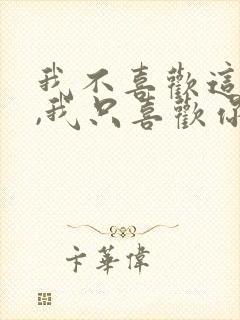 我不喜歡這
,我只喜歡你
卡華偉